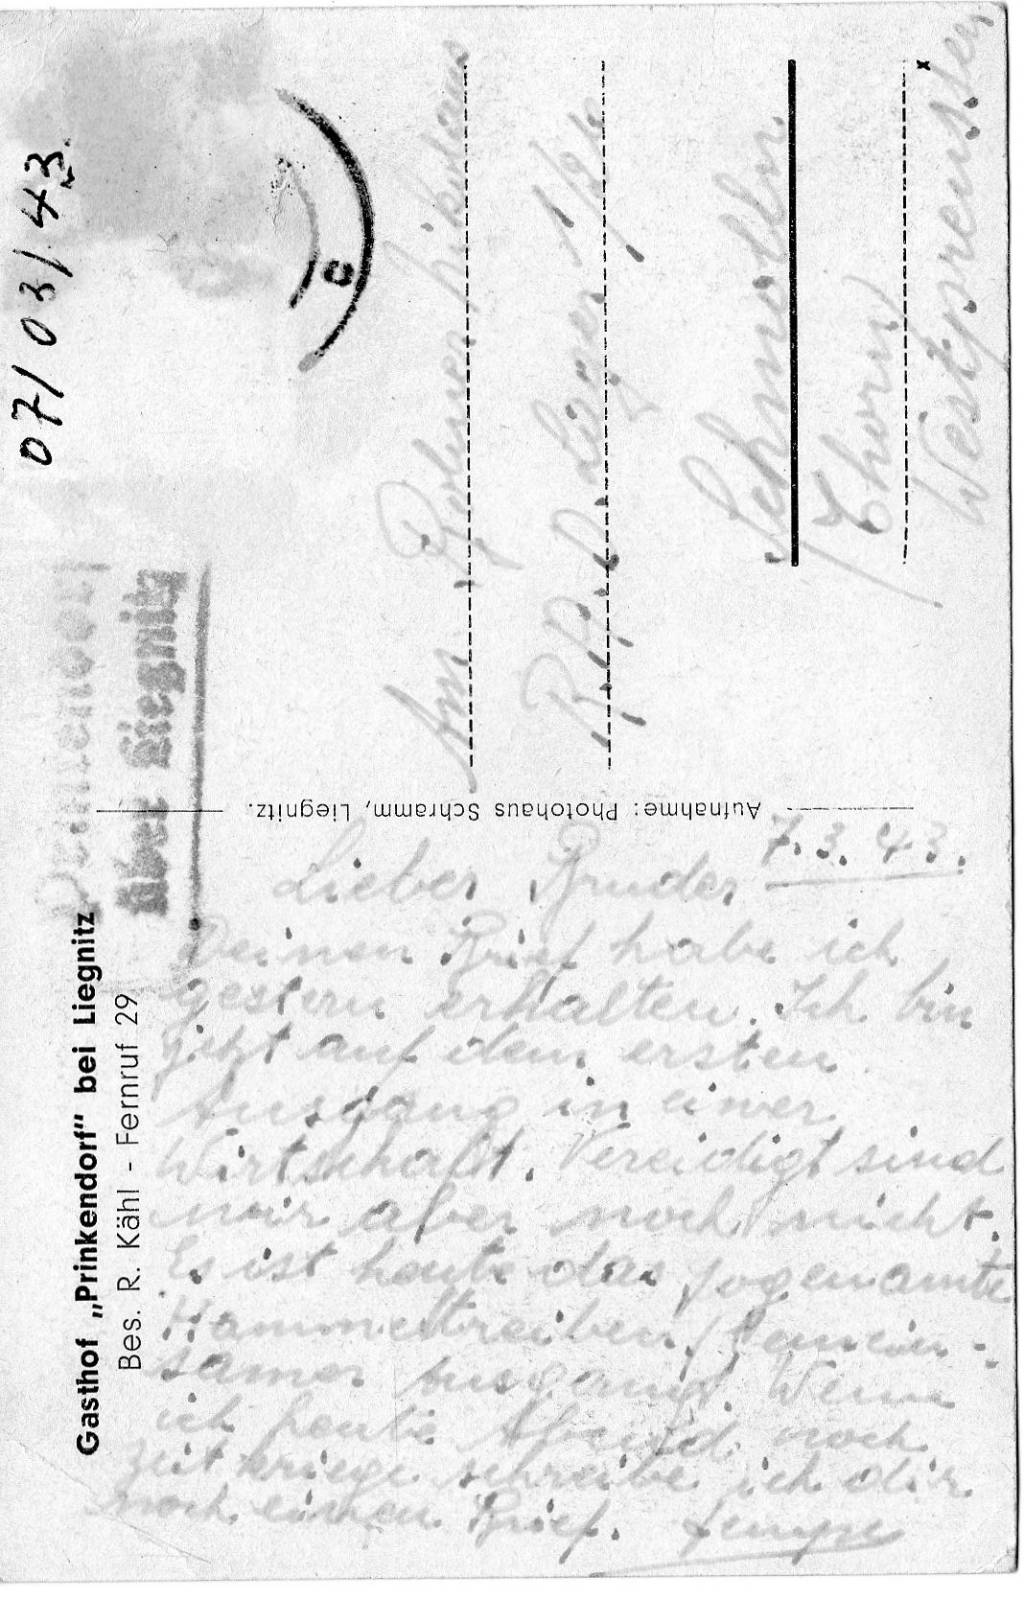 07/03/43
Dahlienoort
über Liegnitz
Gasthof „Prinkendorf“ bei Liegnitz
Bes. R. Kähl - Fernruf 29
c
An
R.A.D. Lager 1/26
Schmolln
(Thorn)
Westpreussen
Aufnahme: Photohaus Schramm, Liegnitz.
7. 3. 43.
Lieber Bruder
Deinen Brief habe ich
gestern erhalten. Ich bin
jetzt auf dem ersten
Ausgang in einer
Wirtschaft. Vereidigt sind
wir aber noch nicht.
Es ist heute das sogenannte
Hammeltreiben (Gemein-
samer Ausgang). Wenn
ich heute Abend noch
zeit kriege schreibe ich dir
noch einen Brief.